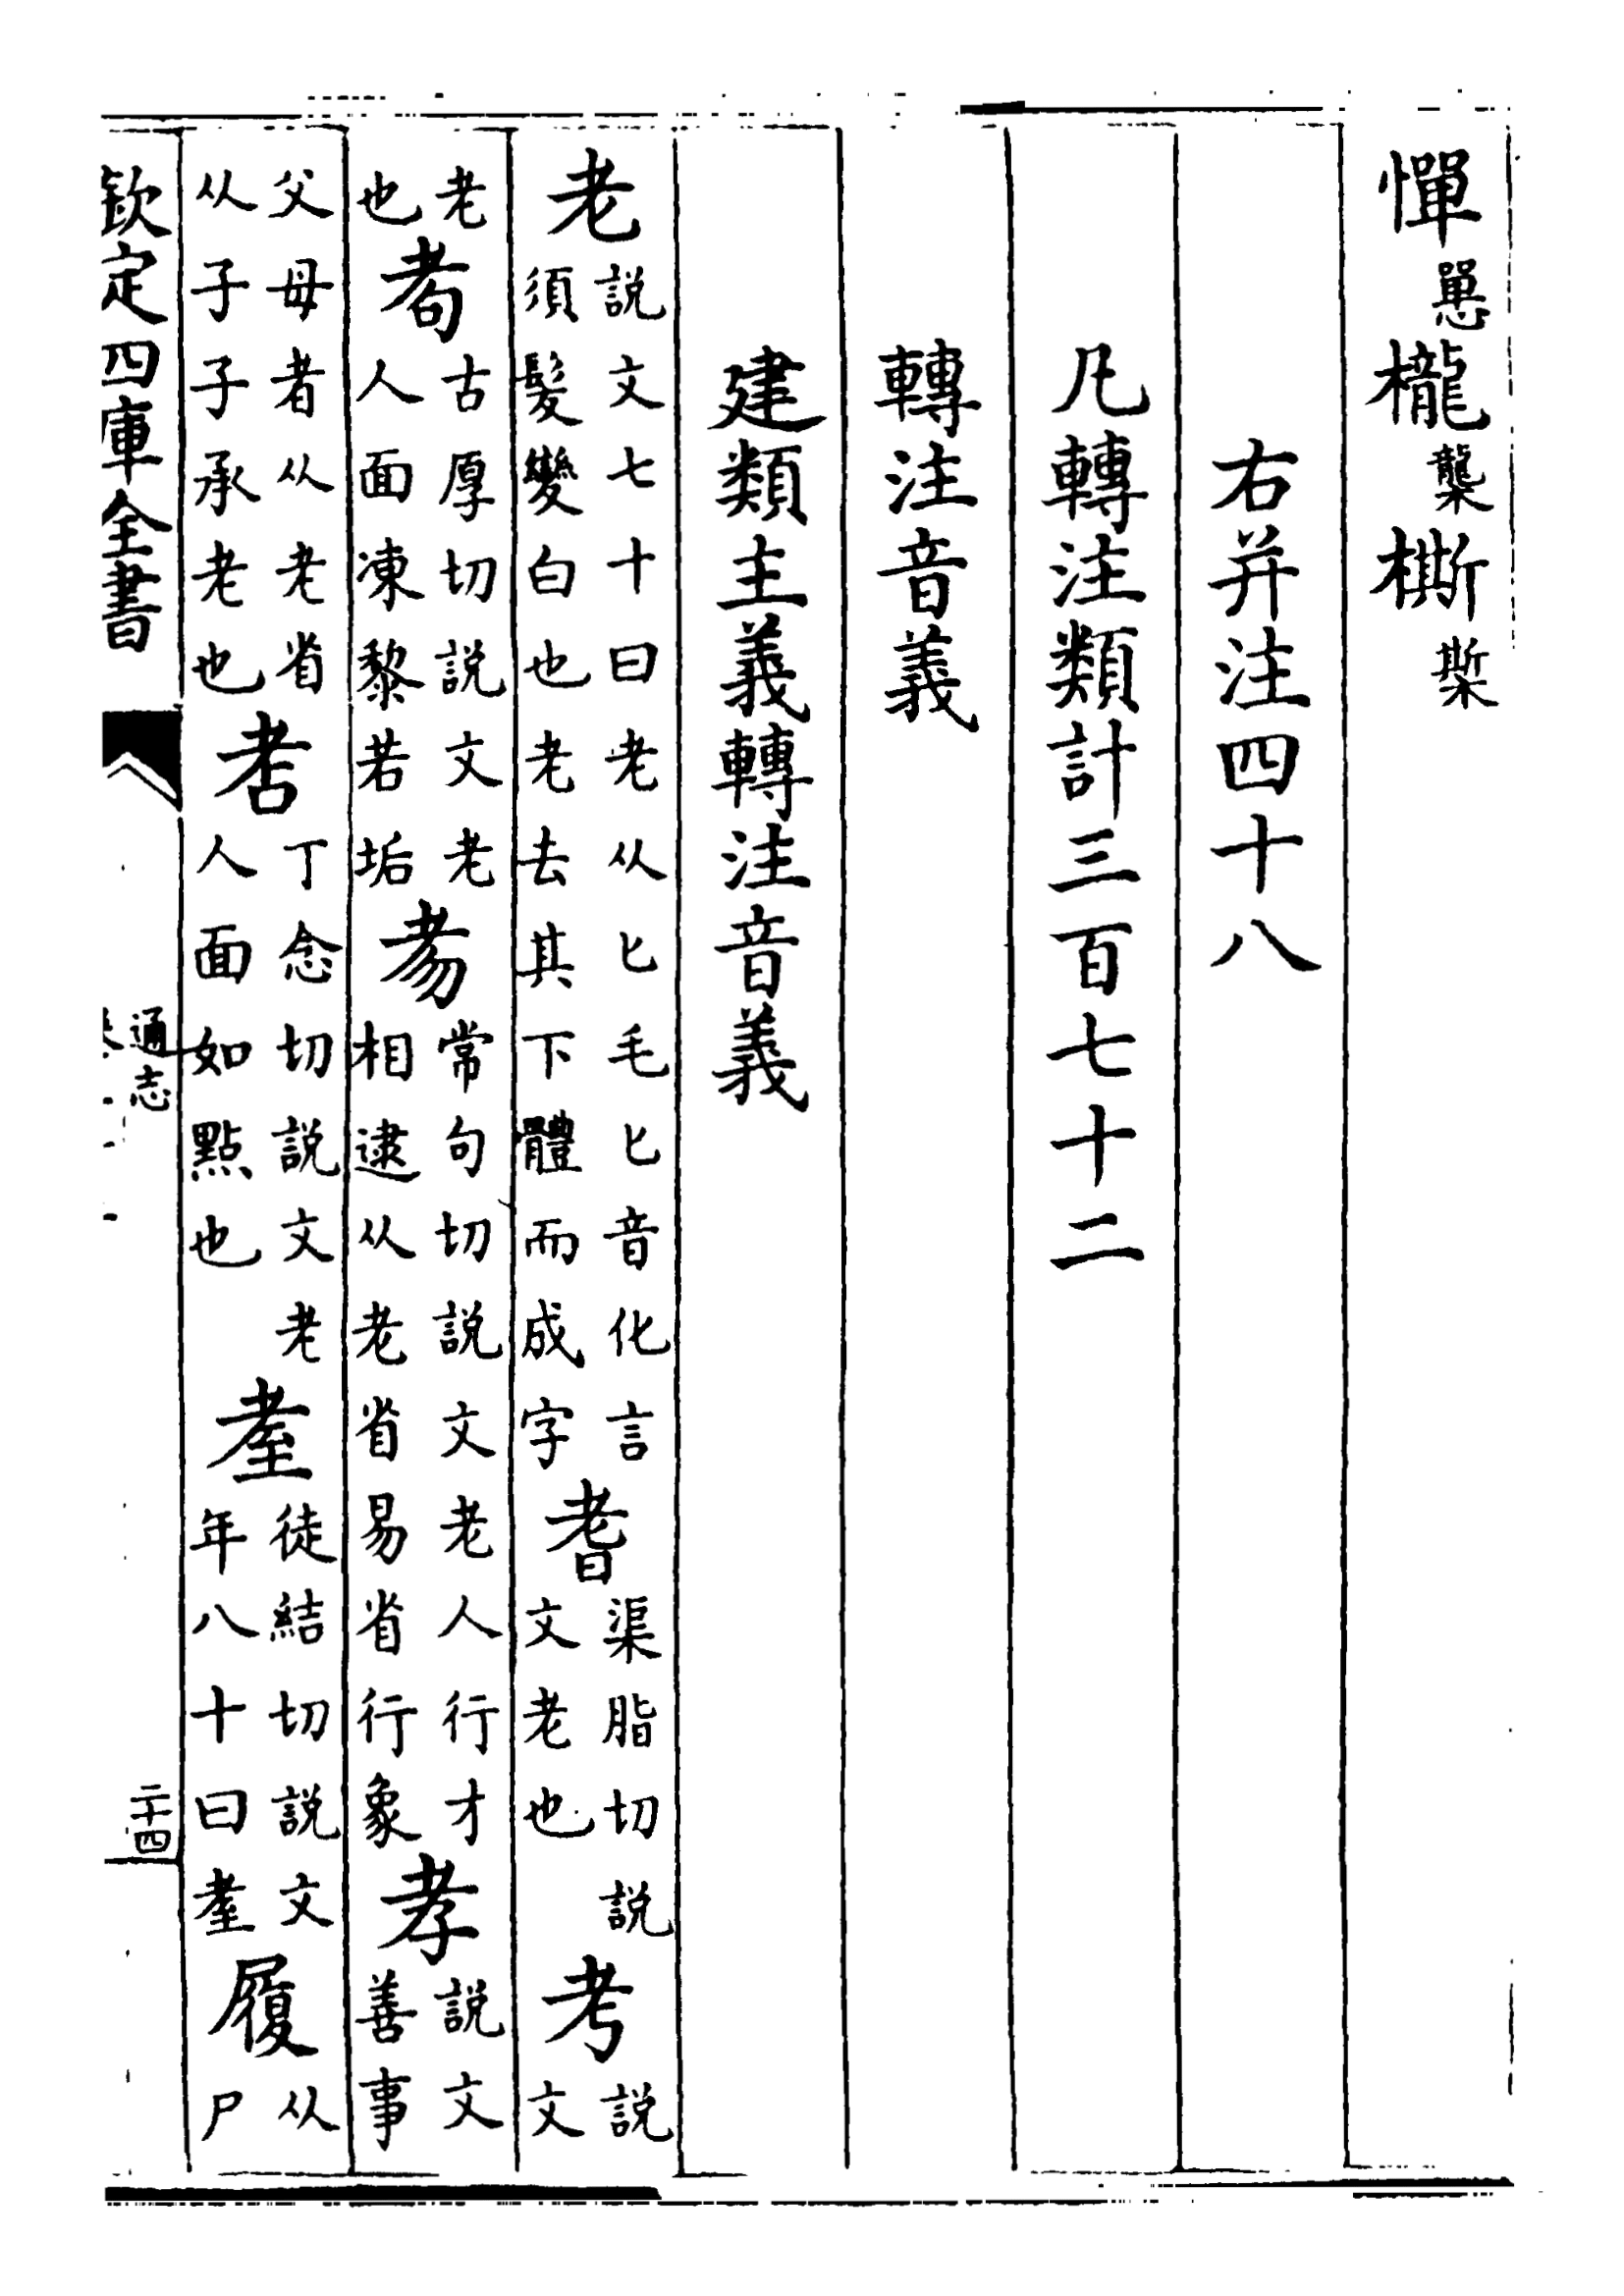 憚櫳㯕
右并注四十八
凡轉注類計三百七十二
轉注音義
建類主義轉注音義
老説文七十曰老从匕毛匕音化言須髮變白也老去其下體而成字耆渠脂切説文老也考説文
老也耇古厚切説文老人面凍黎若垢𦒱常句切説文老人行才相逮从老省易省行象孝説文善事
父母者从老省从子子承老也𦒻丁念切説文老人面如點也耊徒結切説文年八十曰耊履从尸
欽定四庫全書
通志
二十四